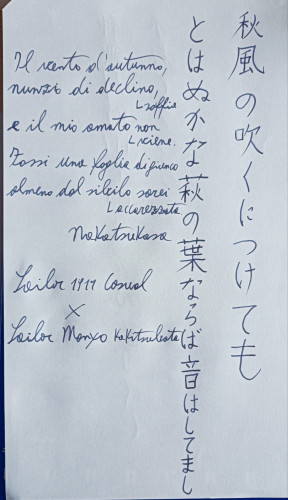 秋風の吹くにつけても
とはぬかな萩の葉ならば音はしてまし
Il vento d'autunno,
nunzio di declino,
soffia
e il mio amato non
viene.
Fossi una foglia di giunco
almeno dal sibilo sarei
accarezzata
Nakatsukasa
Sailor 1911 Cosual
×
Sailor Manyo Kakitsubata